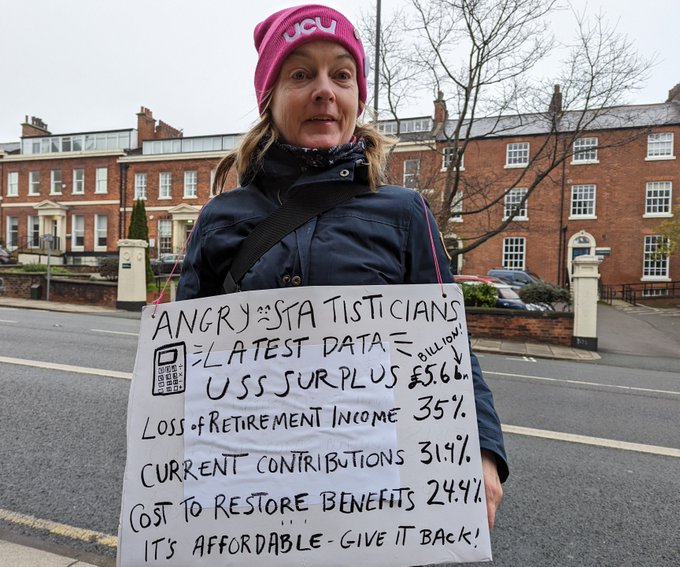 UCU
ANGRY STATISTICIANS
LATEST DATA
BILLION!
USS SURPLUS £5.6bn
LOSS of RETIREMENT INCOME 35%
CURRENT CONTRIBUTIONS 31.4%
COST TO RESTORE BENEFITS 24.4%
IT'S AFFORDABLE - GIVE IT BACK!